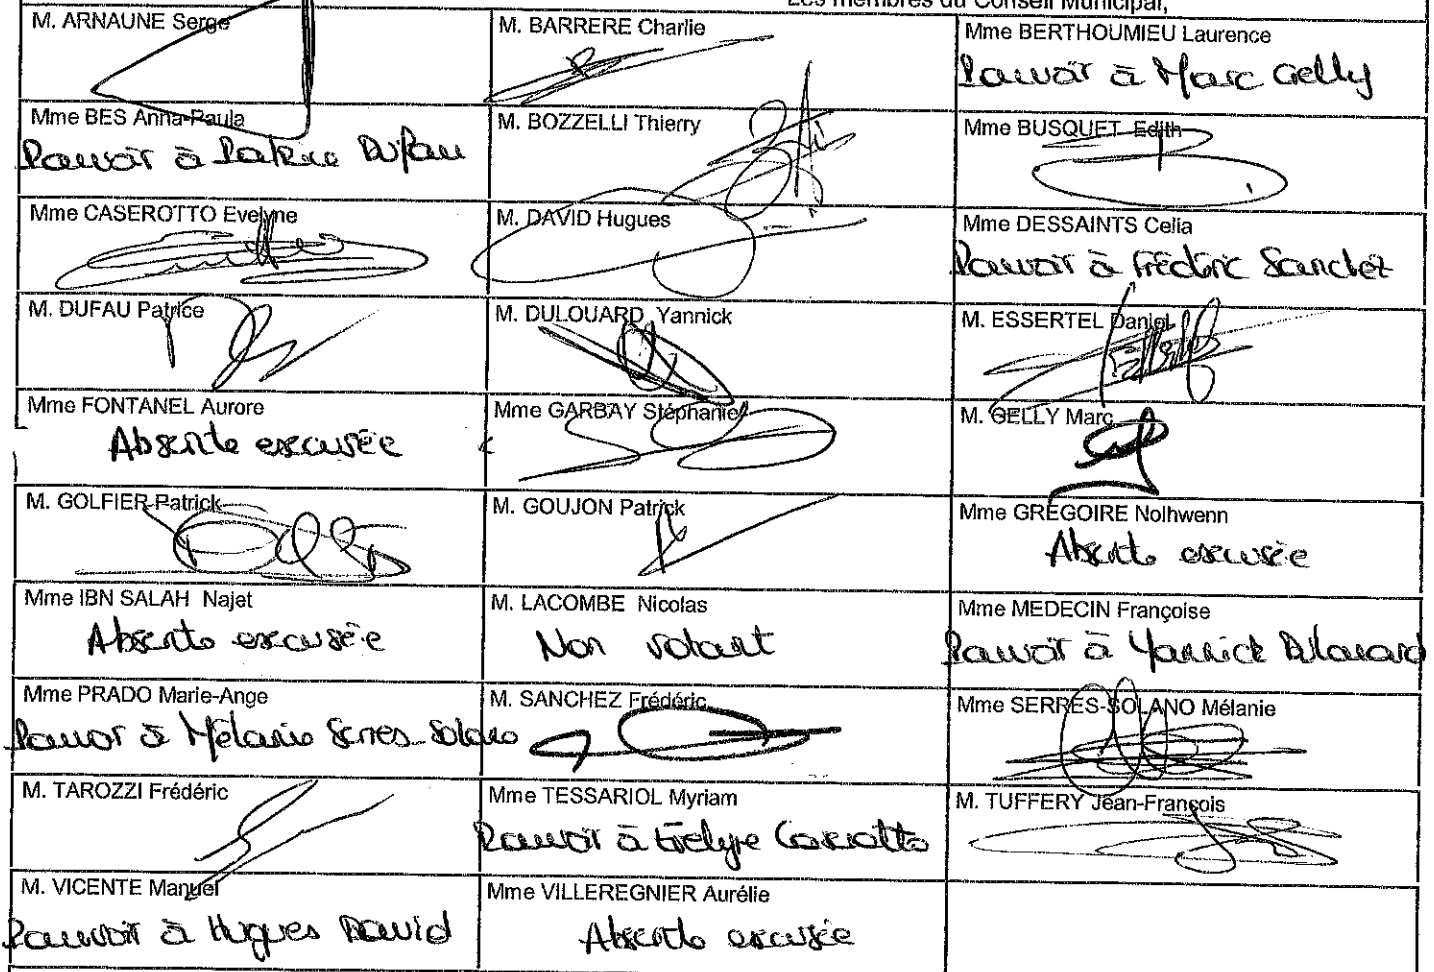 Les membres du Conseil Municipal,
M. ARNAUNE Serge
M. BARRERE Charlie
Mme BERTHOUMIEU Laurence
Pouvoir à Marc Gelly
Mme BES Anna-Paula
Pouvoir à Patrice Dufau
M. BOZZELLI Thierry
Mme BUSQUET Edith
Mme CASEROTTO Evelyne
M. DAVID Hugues
Mme DESSAINTS Celia
Pouvoir à Frédéric Sanchez
M. DUFAU Patrice
M. DULOUARD Yannick
M. ESSERTEL Daniel
Mme FONTANEL Aurore
Absente excusée
Mme GARBAY Stéphanie
M. GELLY Marc
M. GOLFIER Patrick
M. GOUJON Patrick
Mme GREGOIRE Nolhwenn
Absente excusée
Mme IBN SALAH Najet
Absente excusée
M. LACOMBE Nicolas
Non votant
Mme MEDECIN Françoise
Pouvoir à Yannick Dulouard
Mme PRADO Marie-Ange
Pouvoir à Mélanie Serres-Solano
M. SANCHEZ Frédéric
Mme SERRES-SOLANO Mélanie
M. TAROZZI Frédéric
Mme TESSARIOL Myriam
Pouvoir à Evelyne Caserotto
M. TUFFERY Jean-François
M. VICENTE Manuel
Pouvoir à Hugues David
Mme VILLEREGNIER Aurélie
Absente excusée